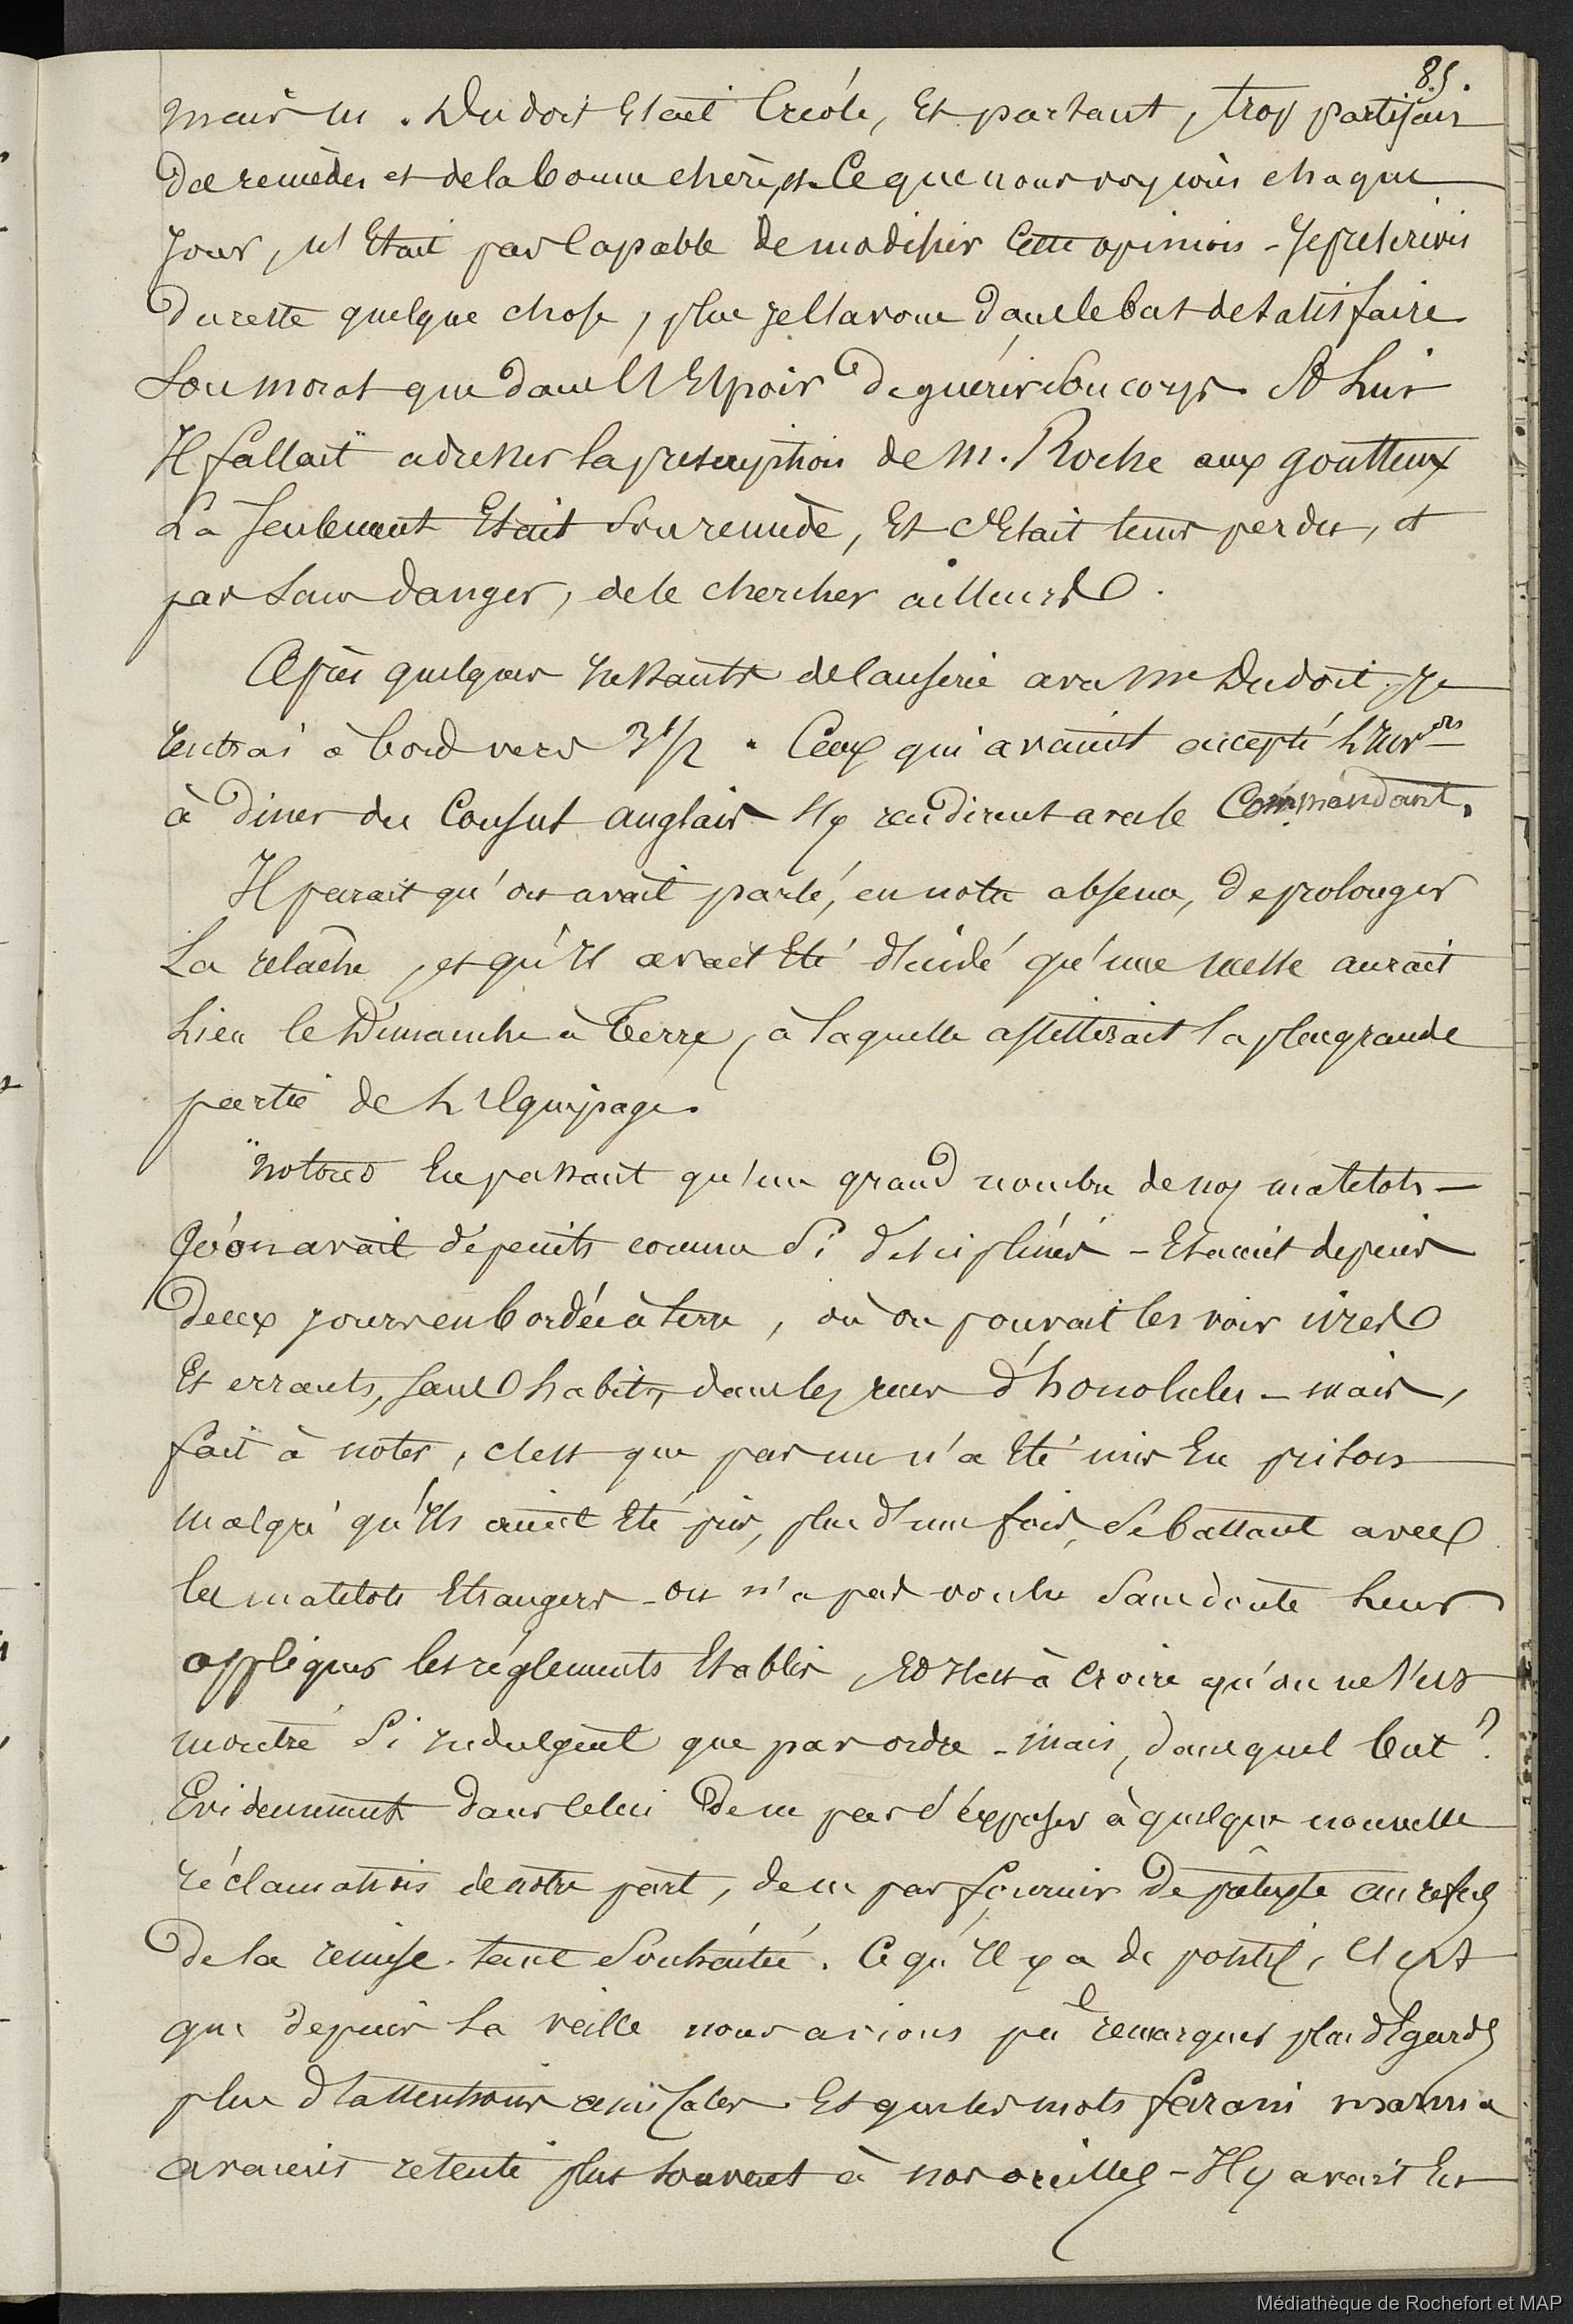 85.
mais M. Dudoit Etait Créole, Et partant, trop partisan
de remèdes et de la bonne chère, et Ce que nous voyions chaque
jour, n'Etait pas Capable de modifier Cette opinion - Je prescrivis
du reste quelque chose, plus je l'avoue dans le but de satisfaire
son moral que dans l'Espoir de guérir son corps. A lui
Il fallait adresser la prescription de M. Roche aux goutteux
Là seulement Etait son remède, Et c'Etait tems perdu, et
pas sans danger, de le chercher ailleurs.
Après quelques Instants de Causerie avec Mr Dudoit, je
rentrai à bord vers 3 1/2. Ceux qui avaient accepté l'Inv.on
à diner du Consul anglais s'y rendirent avec le Commandant.
Il parait qu'on avait parlé, en notre absence, de prolonger
La relâche, et qu'Il avait Eté décidé qu'une messe aurait
Lieu le Dimanche à Terre, à laquelle assisterait la plus grande
partie de L'Equipage.
Notons En passant qu'un grand nombre de nos matelots -
Qu'on avait dépeints comme Si disciplinés - Etaient depuis
Deux jours en bordée à terre, où on pouvait les voir ivres
Et errants, sans habits, dans les rues d'honolulu - mais,
fait à noter, c'est que pas un n'a Eté mis En prison
malgré qu'Ils aient Eté pris, plus d'une fois, Se battant avec
les matelots Etrangers - on n'a pas voulu Sans doute Leur
appliquer les réglements Etablis, Et Il est à Croire qu'on ne s'est
montré Si Indulgent que par ordre - mais, dans quel but ?
Evidemment dans Celui de ne pas s'exposer à quelque nouvelle
réclamation de notre part, de ne pas fournir de prétexte au refus
de la remise tant Souhaitée. Ce qu'Il y a de positif, C'est
que depuis La veille nous avions pu remarquer plus d'Egards
plus d'attentions amicales Et que les mots farani maïtaï
avaient retenti plus souvent à nos oreilles - Il y avait Eu
Médiathèque de Rochefort et MAP